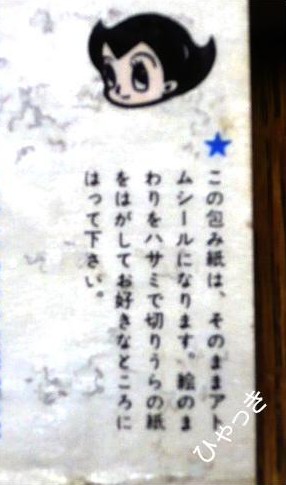 ★この包み紙は、そのままアト
ムシールになります。絵のま
わりをハサミで切りうらの紙
をはがしてお好きなところに
はって下さい。
ひゃっき